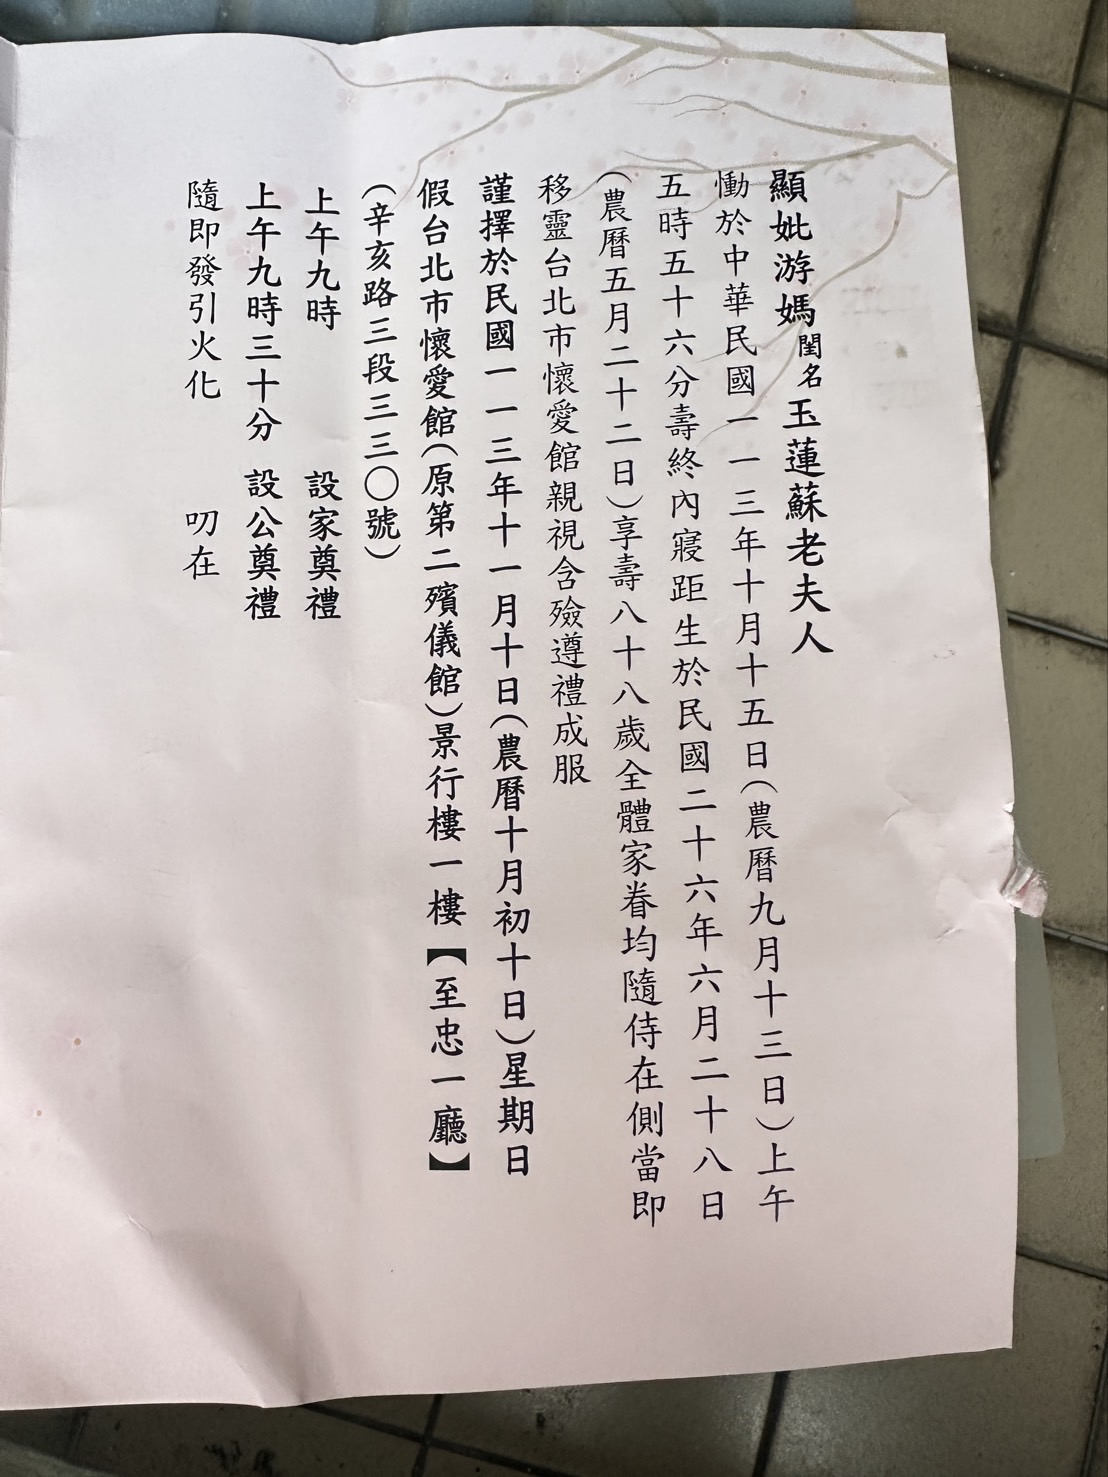 顯妣游媽閨名玉蓮蘇老夫人
慟於中華民國一一三年十月十五日(農曆九月十三日)上午
五時五十六分壽終內寢距生於民國二十六年六月二十八日
(農曆五月二十二日)享壽八十八歲全體家眷均隨侍在側當即
移靈台北市懷愛館親視含殮遵禮成服
謹擇於民國一一三年十一月十日(農曆十月初十日)星期日
假台北市懷愛館(原第二殯儀館)景行樓一樓【至忠一廳】
(辛亥路三段三三〇號)
上午九時 設家奠禮
上午九時三十分 設公奠禮
隨即發引火化 叨在